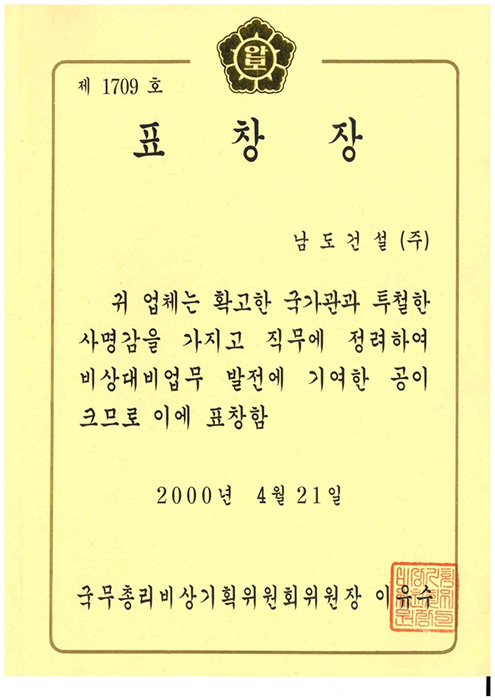 안보
제 1709 호
표 창 장
남도건설 (주)
귀 업체는 확고한 국가관과 투철한
사명감을 가지고 직무에 정려하여
비상대비업무 발전에 기여한 공이
크므로 이에 표창함
2000년 4월 21일
국무총리비상기획위원회위원장 이유수